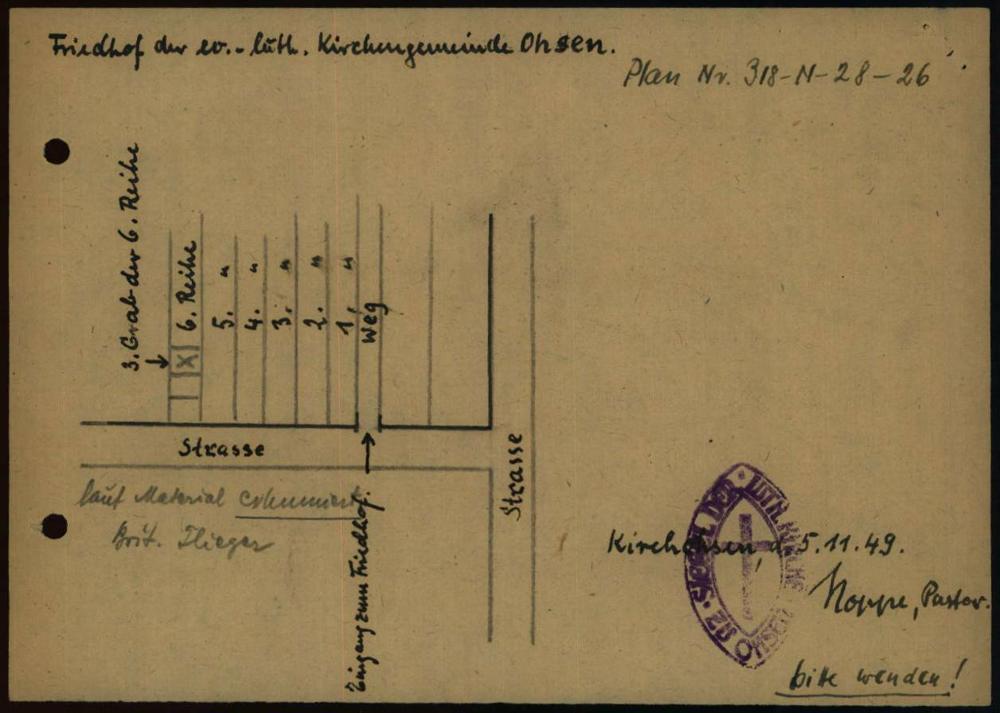 Friedhof der ev.-luth. Kirchengemeinde Ohsen.
Plan Nr. 318-N-28-26
3. Grab der 6. Reihe
X
6. Reihe
5. "
4. "
3. "
2. "
1. "
Weg
Strasse
Strasse
Eingang zum Friedhof.
laut Material exhumiert
Brit. Flieger
Kirchohsen, d. 5.11.49.
Noppe, Pastor.
SIEGEL DER LUTH. KIRCHE OHSEN
bitte wenden!